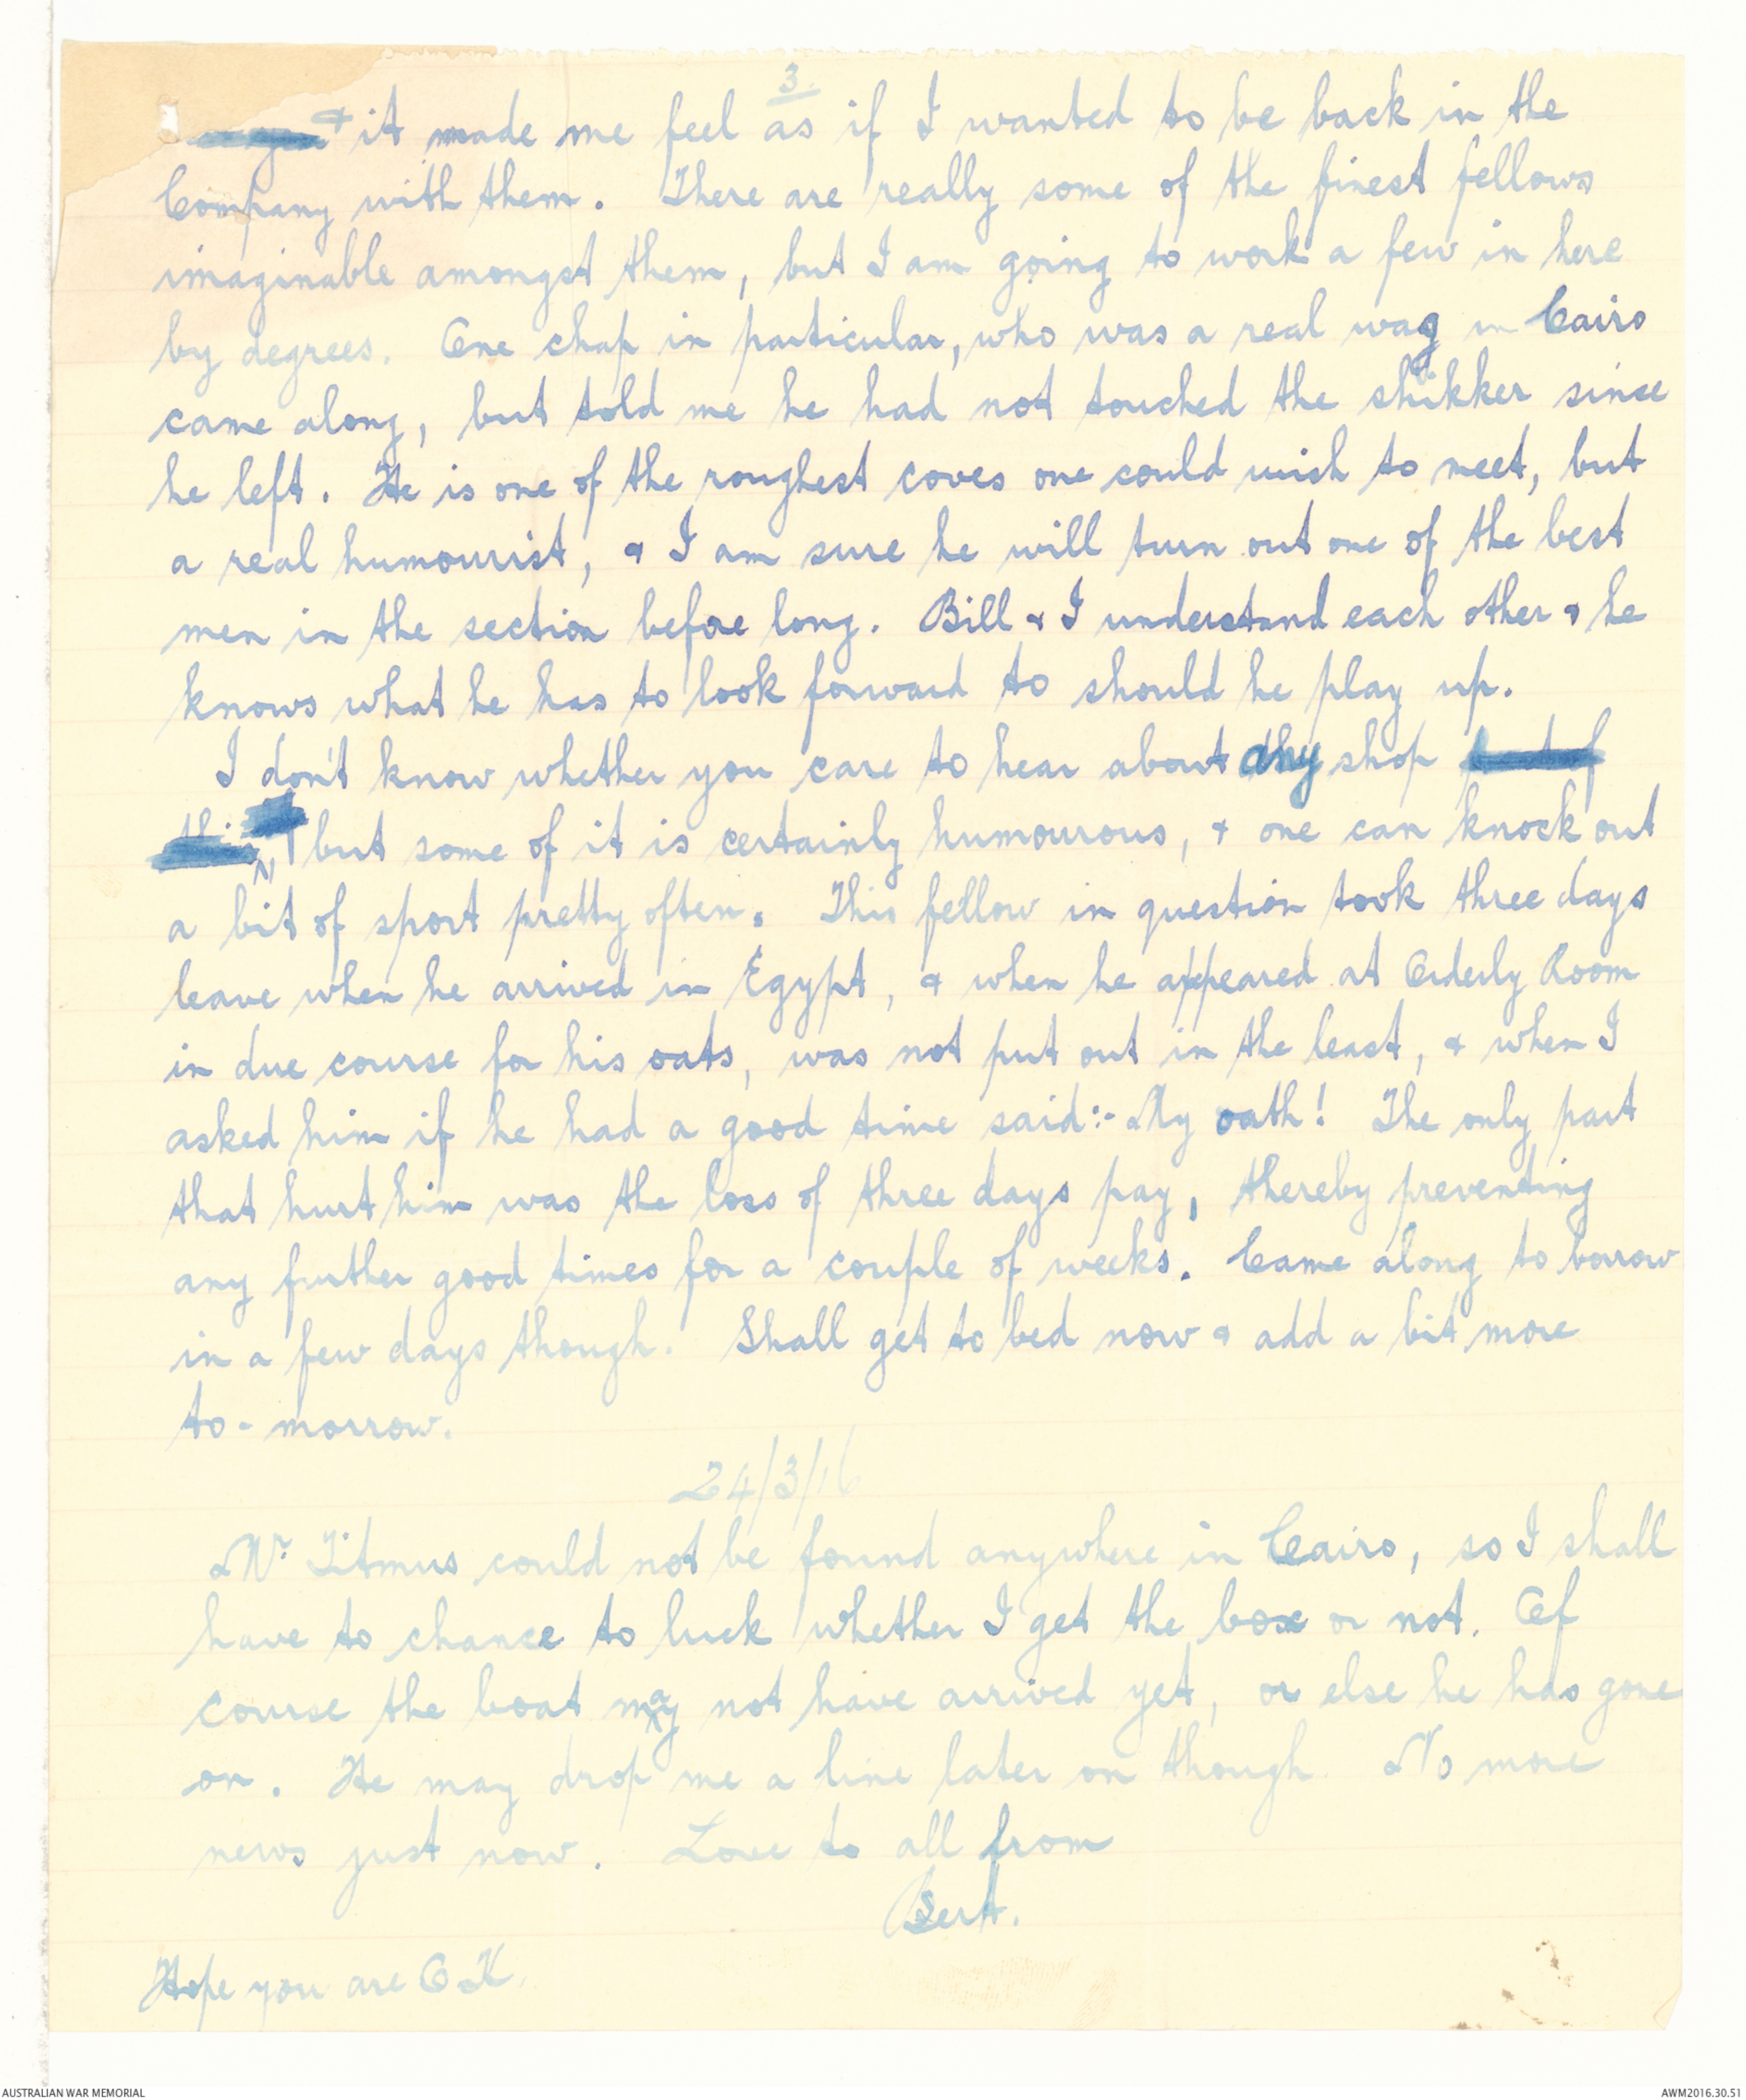 3.
& it made me feel as if I wanted to be back in the
Company with them. There are really some of the finest fellows
imaginable amongst them, but I am going to work a few in here
by degrees. One chap in particular, who was a real wag in Cairo
came along, but told me he had not touched the shikker since
he left. He is one of the roughest coves one could wish to meet, but
a real humourist, & I am sure he will turn out one of the best
men in the section before long. Bill & I understand each other & he
knows what he has to look forward to should he play up.
I don't know whether you care to hear about shop
but some of it is certainly humourous, & one can knock out
a bit of sport pretty often. This fellow in question took three days
leave when he arrived in Egypt, & when he appeared at Orderly Room
in due course for his oats, was not put out in the least, & when I
asked him if he had a good time said:- My oath! The only part
that hurt him was the loss of three days pay, thereby preventing
any further good times for a couple of weeks. Came along to borrow
in a few days though. Shall get to bed now & add a bit more
to-morrow.
24/3/16
Mr. Titmus could not be found anywhere in Cairo, so I shall
have to chance to luck whether I get the box or not. Of
course the boat may not have arrived yet, or else he has gone
on. He may drop me a line later on though. No more
news just now. Love to all from
Bert.
Hope you are OK.
AUSTRALIAN WAR MEMORIAL
AWM2016.30.51